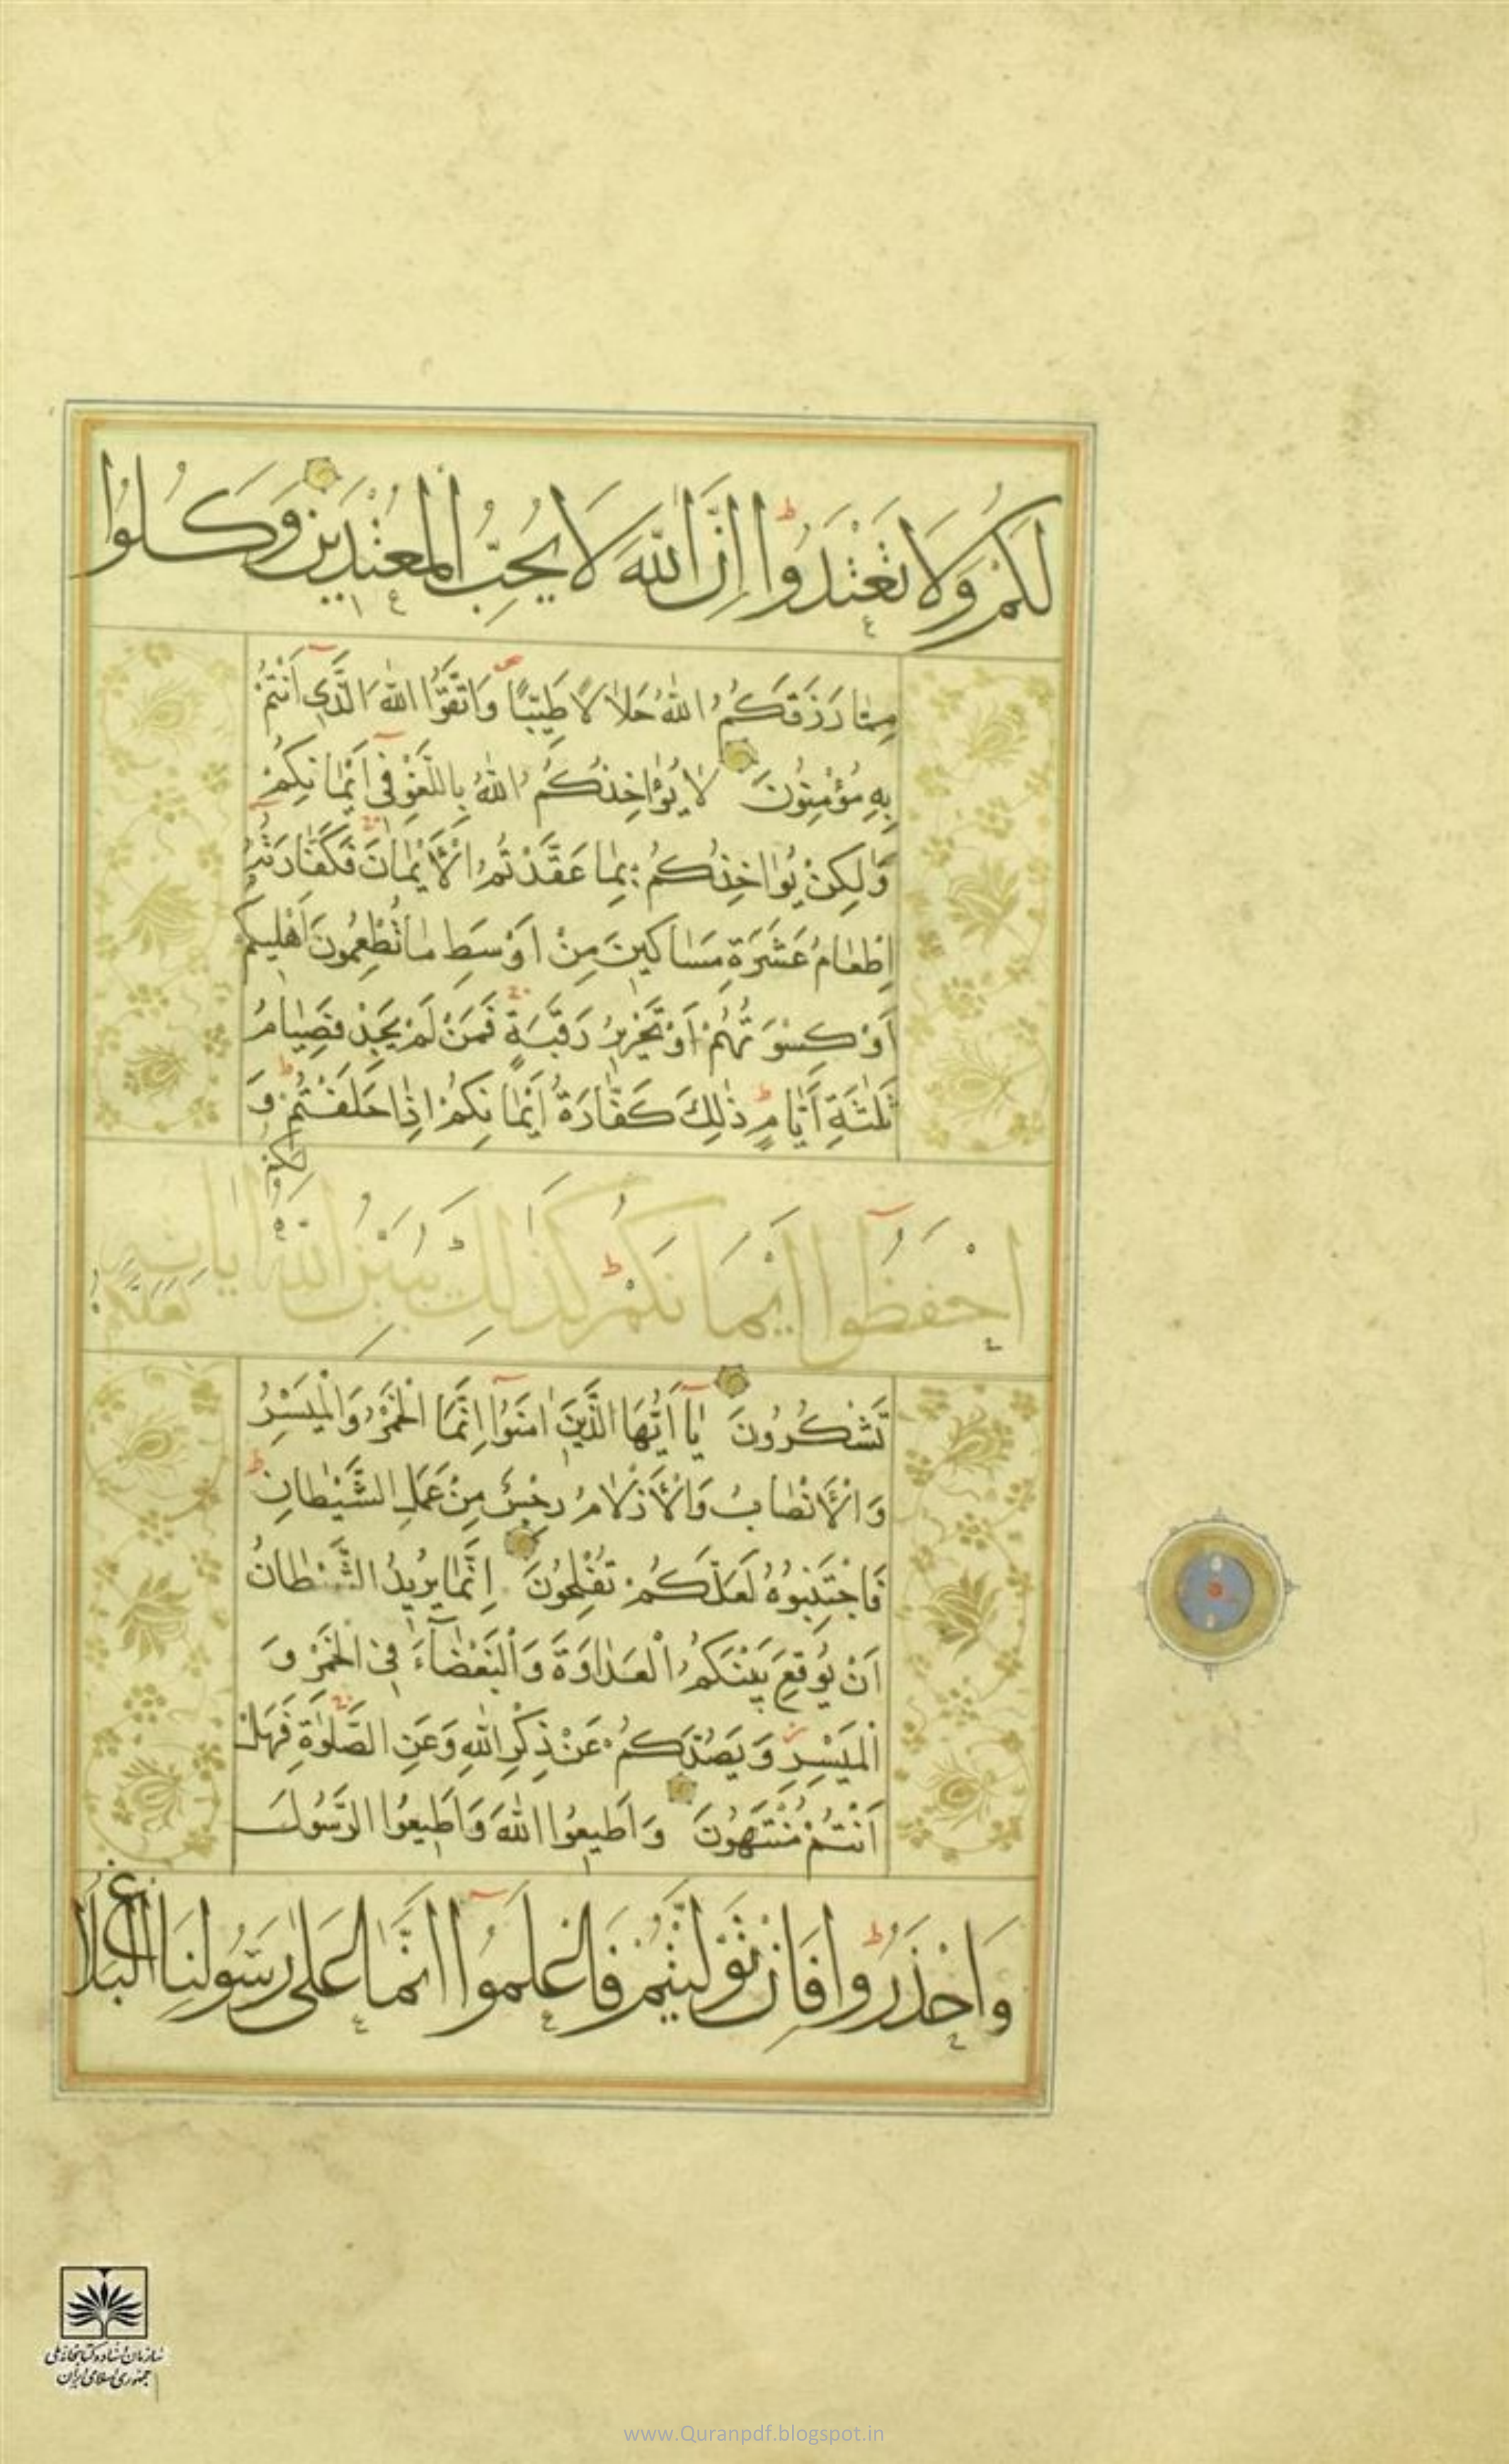 لَكُمْ وَلَا تَعْتَدُوا إِنَّ اللهَ لَا يُحِبُّ الْمُعْتَدِينَ وَكُلُوا
مِمَّا رَزَقَكُمُ اللهُ حَلَالًا طَيِّبًا وَاتَّقُوا اللهَ الَّذِي أَنْتُمْ
بِهِ مُؤْمِنُونَ لَا يُؤَاخِذُكُمُ اللهُ بِاللَّغْوِ فِي أَيْمَانِكُمْ
وَلَكِنْ يُؤَاخِذُكُمْ بِمَا عَقَّدْتُمُ الْأَيْمَانَ فَكَفَّارَتُهُ
إِطْعَامُ عَشَرَةِ مَسَاكِينَ مِنْ أَوْسَطِ مَا تُطْعِمُونَ أَهْلِيكُمْ
أَوْ كِسْوَتُهُمْ أَوْ تَحْرِيرُ رَقَبَةٍ فَمَنْ لَمْ يَجِدْ فَصِيَامُ
ثَلٰثَةِ أَيَّامٍ ذَلِكَ كَفَّارَةُ أَيْمَانِكُمْ إِذَا حَلَفْتُمْ وَ
احْفَظُوا أَيْمَانَكُمْ كَذَالِكَ يُبَيِّنُ اللهُ لَكُمْ آيَاتِهِ لَعَلَّكُمْ
تَشْكُرُونَ يَا أَيُّهَا الَّذِينَ امَنُوا إِنَّمَا الْخَمْرُ وَالْمَيْسِرُ
وَالْأَنْصَابُ وَالْأَزْلَامُ رِجْسٌ مِنْ عَمَلِ الشَّيْطَانِ
فَاجْتَنِبُوهُ لَعَلَّكُمْ تُفْلِحُونَ إِنَّمَا يُرِيدُ الشَّيْطَانُ
أَنْ يُوقِعَ بَيْنَكُمُ الْعَدَاوَةَ وَالْبَغْضَاءَ فِي الْخَمْرِ وَ
الْمَيْسِرِ وَيَصُدَّكُمْ عَنْ ذِكْرِ اللهِ وَعَنِ الصَّلٰوةِ فَهَلْ
أَنْتُمْ مُنْتَهُونَ وَأَطِيعُوا اللهَ وَأَطِيعُوا الرَّسُولَ
وَاحْذَرُوا فَإِنْ تَوَلَّيْتُمْ فَاعْلَمُوا أَنَّمَا عَلَى رَسُولِنَا الْبَلَاغُ
سازمان اسناد و کتابخانه ملی
جمهوری اسلامی ایران
www.Quranpdf.blogspot.in